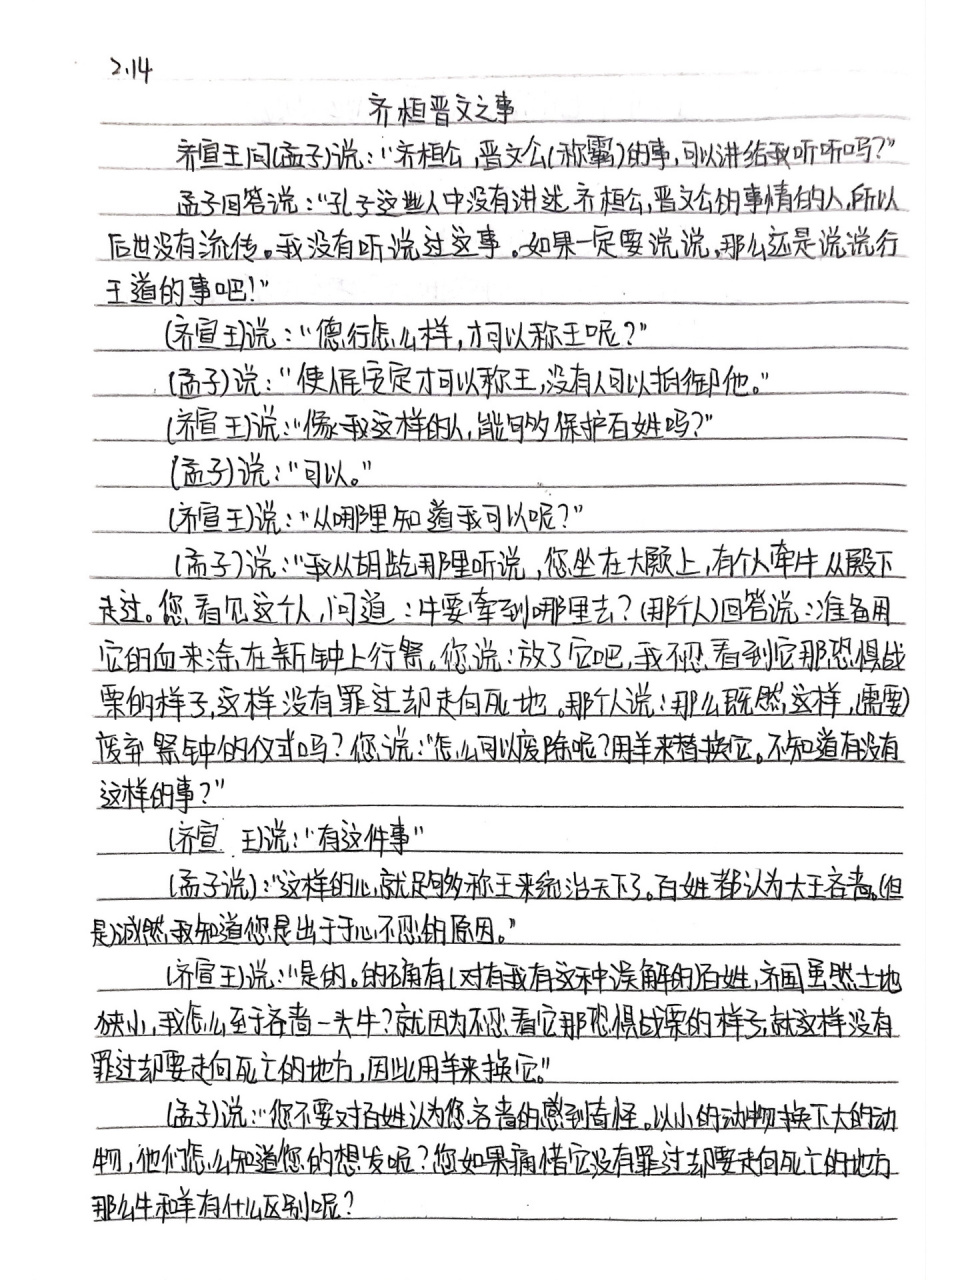 2.14
齐桓晋文之事
齐宣王问(孟子)说：“齐桓公,晋文公(称霸)的事,可以讲给我听听吗?”
孟子回答说：“孔子这些人中没有讲述齐桓公,晋文公的事情的人,所以
后世没有流传。我没有听说过这事。如果一定要说说,那么还是说说行
王道的事吧!”
(齐宣王)说：“德行怎么样,才可以称王呢?”
(孟子)说：“使人民安定才可以称王,没有人可以抵御他。”
(齐宣王)说：“像我这样的人,能够保护百姓吗?”
(孟子)说：“可以。”
(齐宣王)说：“从哪里知道我可以呢?”
(孟子)说：“我从胡龁那里听说,您坐在大殿上,有个人牵牛从殿下
走过。您看见这个人,问道：牛要牵到哪里去?(那个人)回答说：准备用
它的血来涂在新钟上行祭。您说：放了它吧,我不忍看到它那恐惧战
栗的样子,这样没有罪过却走向死地。那个人说：那么既然这样,(需要)
废弃祭钟的仪式吗?您说：“怎么可以废除呢?用羊来替换它。不知道有没有
这样的事?”
(齐宣 王)说：“有这件事”
(孟子说)：“这样的心就足够称王来统治天下了。百姓都认为大王吝啬。(但
是)诚然,我知道您是出于于心不忍的原因。”
(齐宣王)说：“是的。的确有(对有我有这种误解的)百姓,齐国虽然土地
狭小,我怎么至于吝啬一头牛?就因为不忍看它那恐惧战栗的样子,就这样没有
罪过却要走向死亡的地方,因此用羊来换它。”
(孟子)说：“您不要对百姓认为您吝啬的感到奇怪。以小的动物换下大的动
物,他们怎么知道您的想发呢?您如果痛惜它没有罪过却要走向死亡的地方
那么牛和羊有什么区别呢?